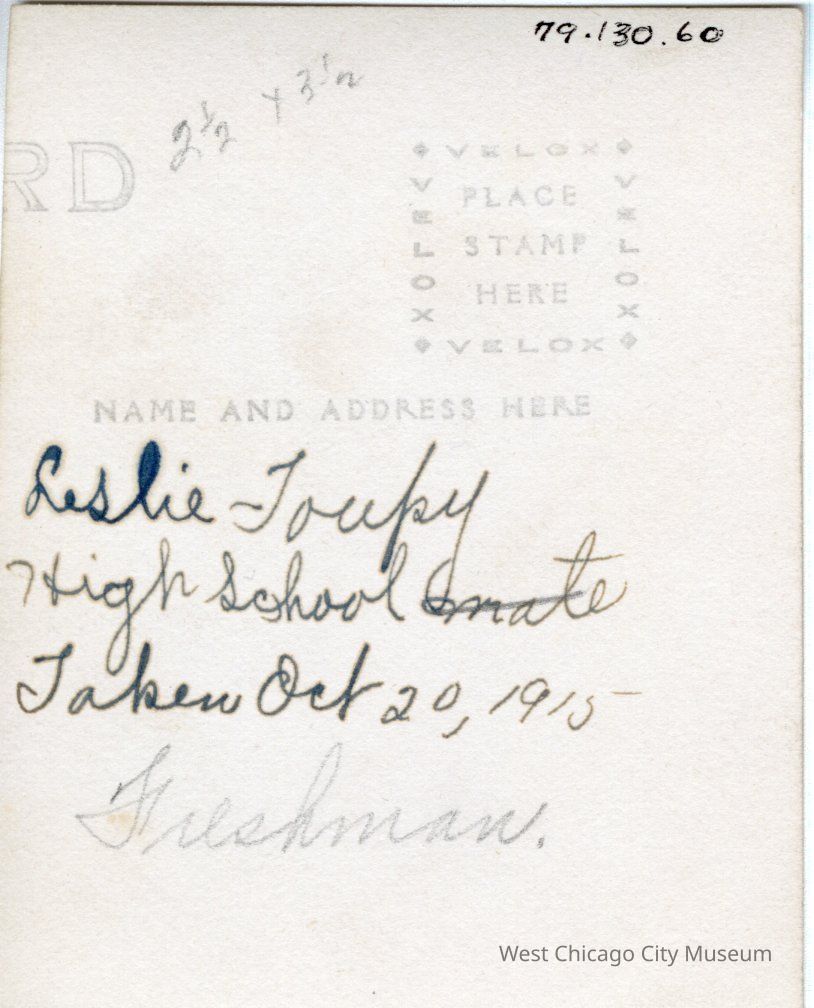 79.130.60
2 1/2 x 3 1/2
RD
VELOX
VELOX
PLACE
STAMP
HERE
VELOX
VELOX
NAME AND ADDRESS HERE
Leslie-Toupy
High School mate
Taken Oct 20, 1915
Freshman.
West Chicago City Museum